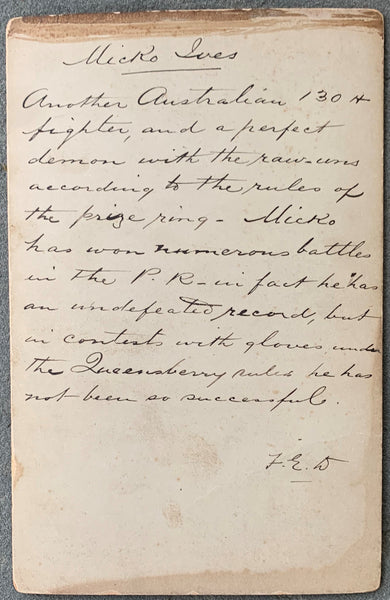 Micko Ives
Another Australian 130 #
fighter, and a perfect
demon with the raw-uns
according to the rules of
the prize ring - Micko
has won numerous battles
in the P. R - in fact he has
an undefeated record, but
in contests with gloves under
the Queensberry rules he has
not been so successful.
F. E. D